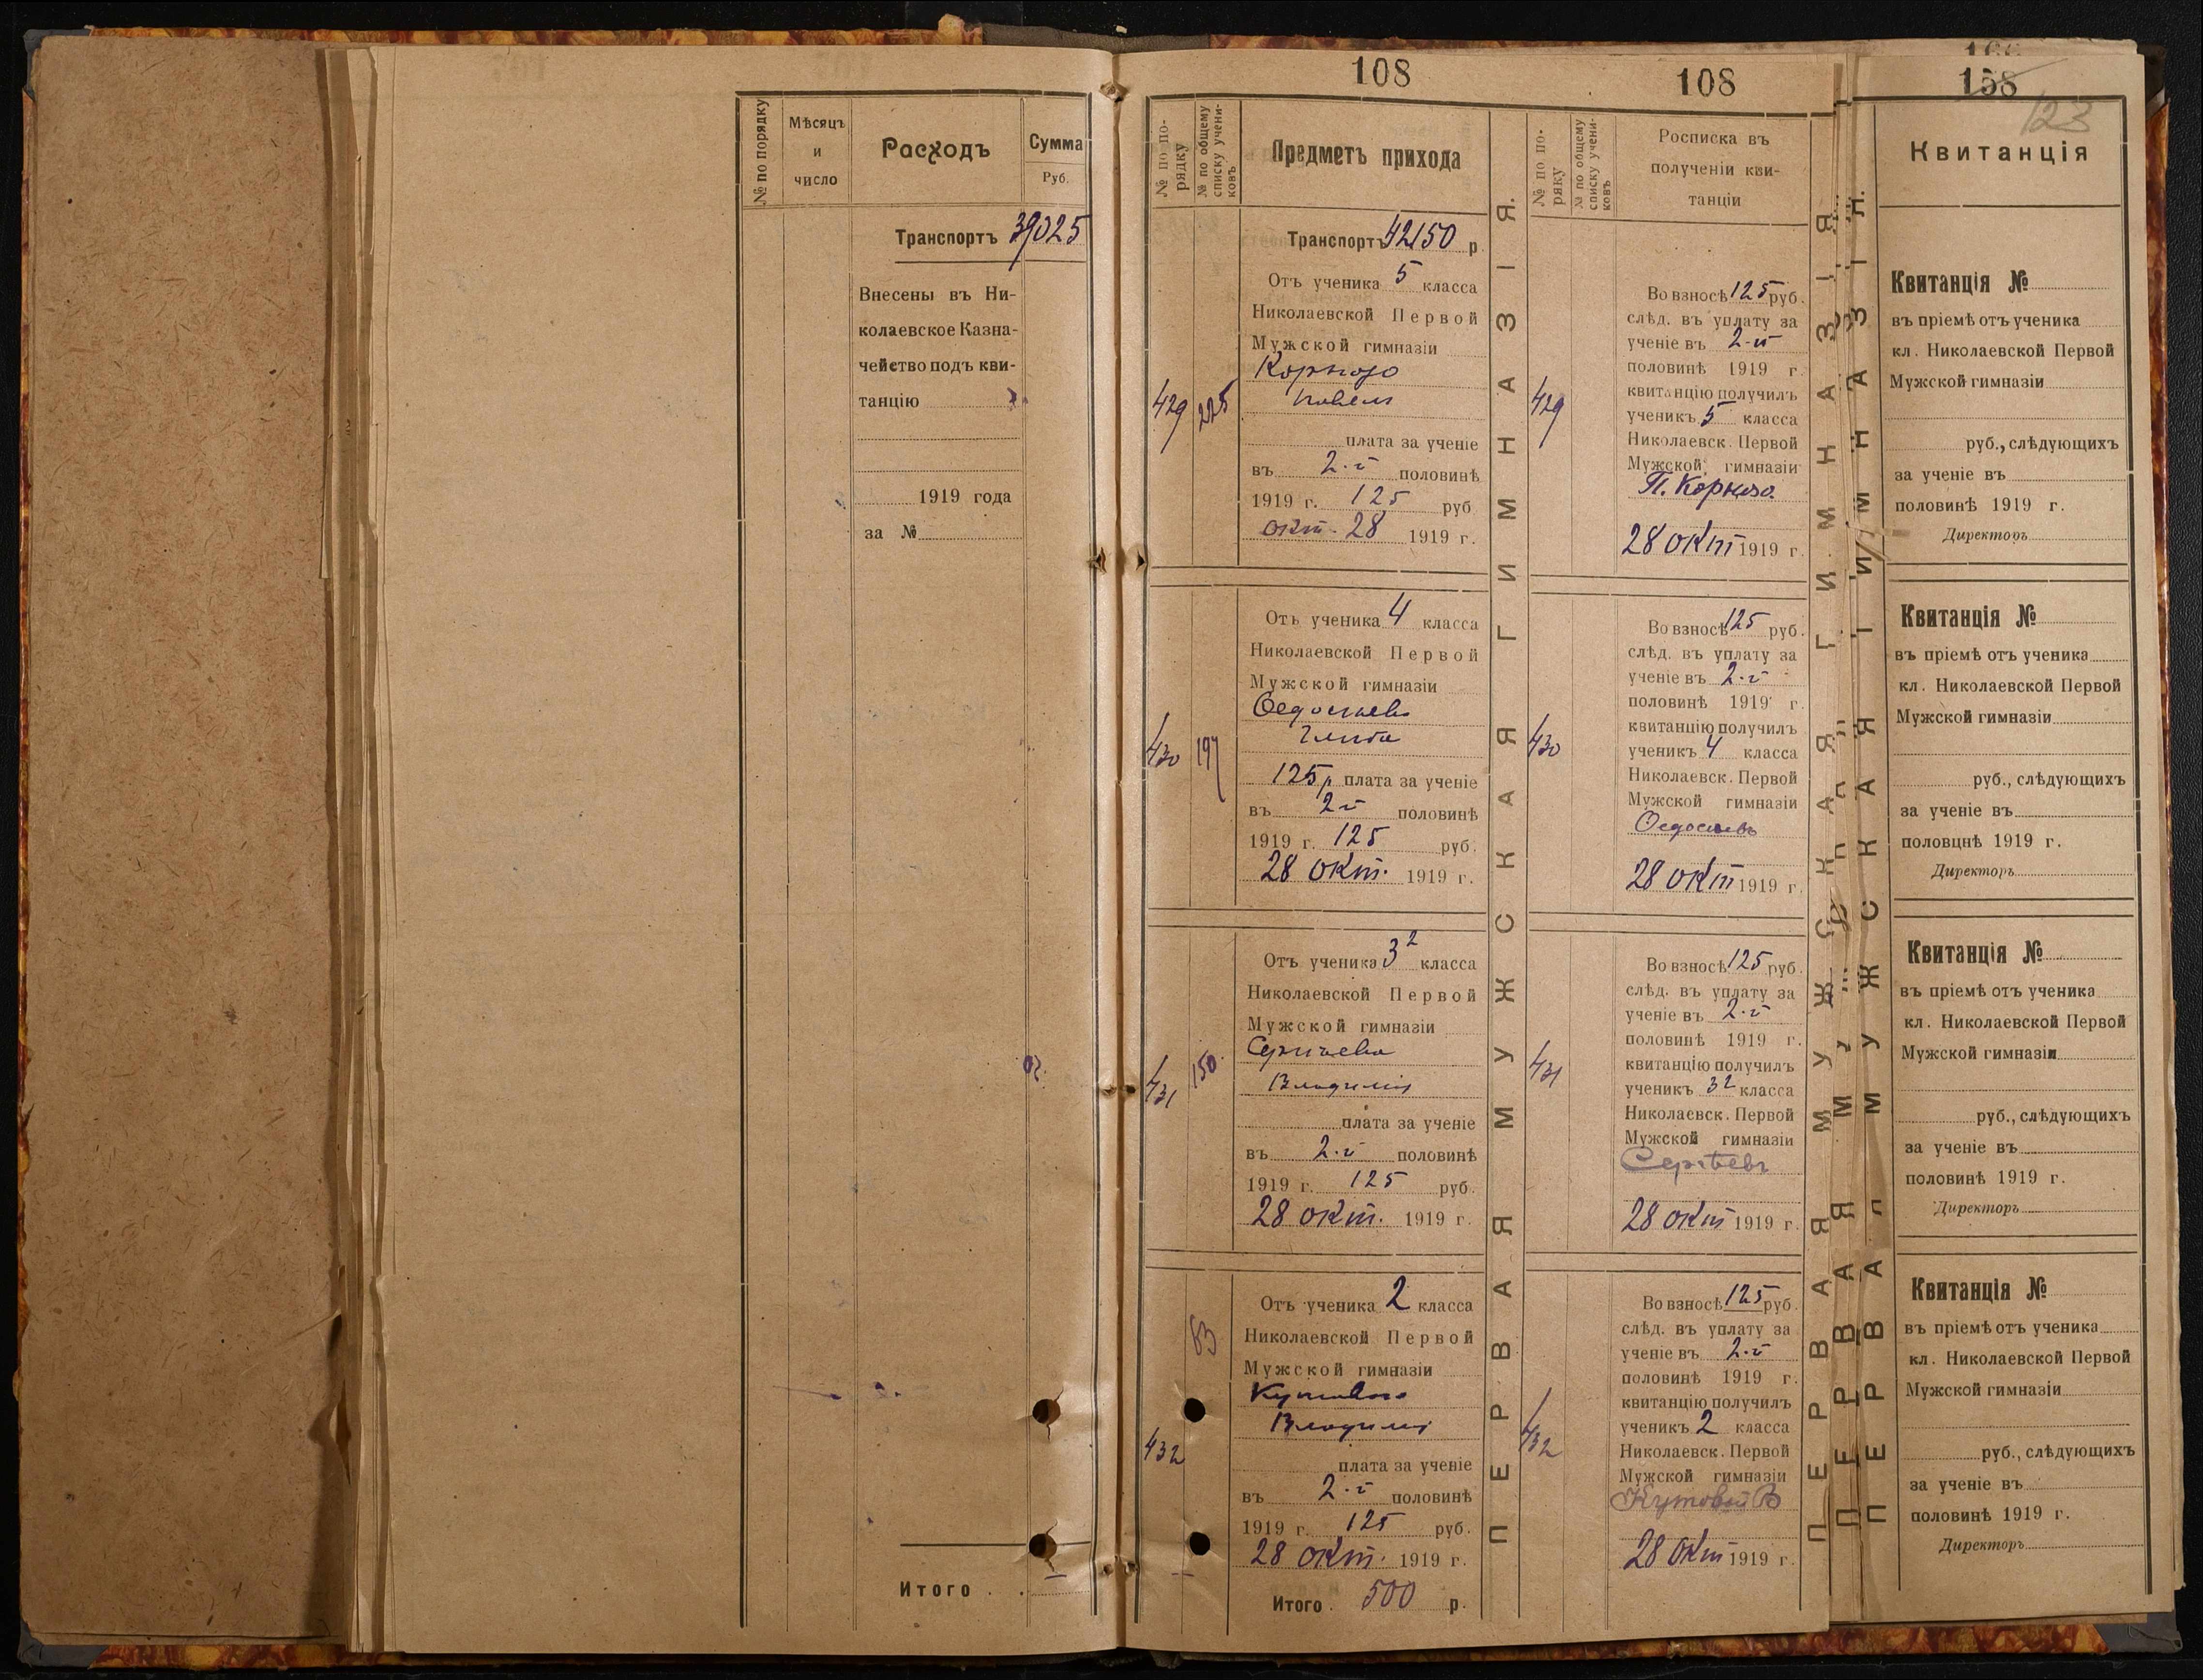 № по порядку
Мѣсяцъ
и
число
Расходъ
Сумма
Руб.
Транспортъ 39025
Внесены въ Ни-
колаевское Казна-
чейство подъ кви-
танцію
1919 года
за №
Итого . .
108
№ по по-
рядку
№ по общему
списку учени-
ковъ
Предметъ прихода
Транспортъ 42150 р
429
225
Отъ ученика 5 класса
Николаевской Первой
Мужской гимназіи
плата за ученіе
въ 2-й половинѣ
1919 г. 125 руб
окт. 28 1919 г.
430
197
Отъ ученика 4 класса
Николаевской Первой
Мужской гимназіи
Глѣба
125р плата за ученіе
въ 2й половинѣ
1919 г. 125 руб.
28 окт. 1919 г.
431
150
Отъ ученика 3² класса
Николаевской Первой
Мужской гимназіи
Сергѣева
Владимір
плата за ученіе
въ 2-й половинѣ
1919 г. 125 руб.
28 окт. 1919 г.
432
63
Отъ ученика 2 класса
Николаевской Первой
Мужской гимназіи
Кутового
Владимір
плата за ученіе
въ 2-й половинѣ
1919 г. 125 руб.
28 окт. 1919 г.
Итого . 500 р.
ПЕРВАЯ МУЖСКАЯ ГИМНАЗІЯ.
108
№ по по-
ряку
№ по общему
списку учени-
ковъ
Росписка въ
полученіи кви-
танціи
429
Во взносѣ 125 руб.
слѣд. въ уплату за
ученіе въ 2-й
половинѣ 1919 г.
квитанцію получилъ
ученикъ 5 класса
Николаевск. Первой
Мужской гимназіи
28 окт 1919 г.
430
Во взносѣ 125 руб.
слѣд. въ уплату за
ученіе въ 2-й
половинѣ 1919 г.
квитанцію получилъ
ученикъ 4 класса
Николаевск. Первой
Мужской гимназіи
28 окт 1919 г.
431
Во взносѣ 125 руб.
слѣд. въ уплату за
ученіе въ 2-й
половинѣ 1919 г.
квитанцію получилъ
ученикъ 3² класса
Николаевск. Первой
Мужской гимназіи
Сергѣевъ
28 окт 1919 г.
432
Во взносѣ 125 руб.
слѣд. въ уплату за
ученіе въ 2-й
половинѣ 1919 г.
квитанцію получилъ
ученикъ 2 класса
Николаевск. Первой
Мужской гимназіи
Кутовой В
28 окт 1919 г.
ПЕРВАЯ МУЖСКАЯ ГИМНАЗІЯ.
158
123
Квитанція
Квитанція №
въ пріемѣ отъ ученика
кл. Николаевской Первой
Мужской гимназіи
руб., слѣдующихъ
за ученіе въ
половинѣ 1919 г.
Директоръ
Квитанція №
въ пріемѣ отъ ученика
кл. Николаевской Первой
Мужской гимназіи
руб., слѣдующихъ
за ученіе въ
половцнѣ 1919 г.
Директоръ
Квитанція №
въ пріемѣ отъ ученика
кл. Николаевской Первой
Мужской гимназіи
руб., слѣдующихъ
за ученіе въ
половинѣ 1919 г.
Директоръ
Квитанція №
въ пріемѣ отъ ученика
кл. Николаевской Первой
Мужской гимназіи
руб., слѣдующихъ
за ученіе въ
половинѣ 1919 г.
Директоръ